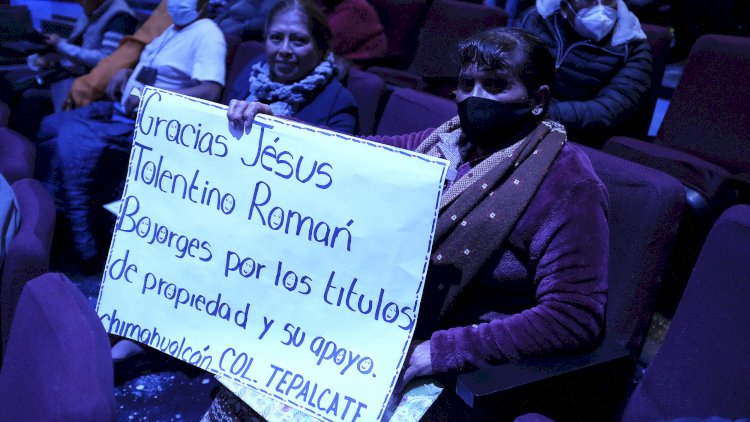 Gracias Jésus
Tolentino Romań
Bojorges por los titulos
de propiedad y su apoyo.
chimahualcán COL. TEPALCATE